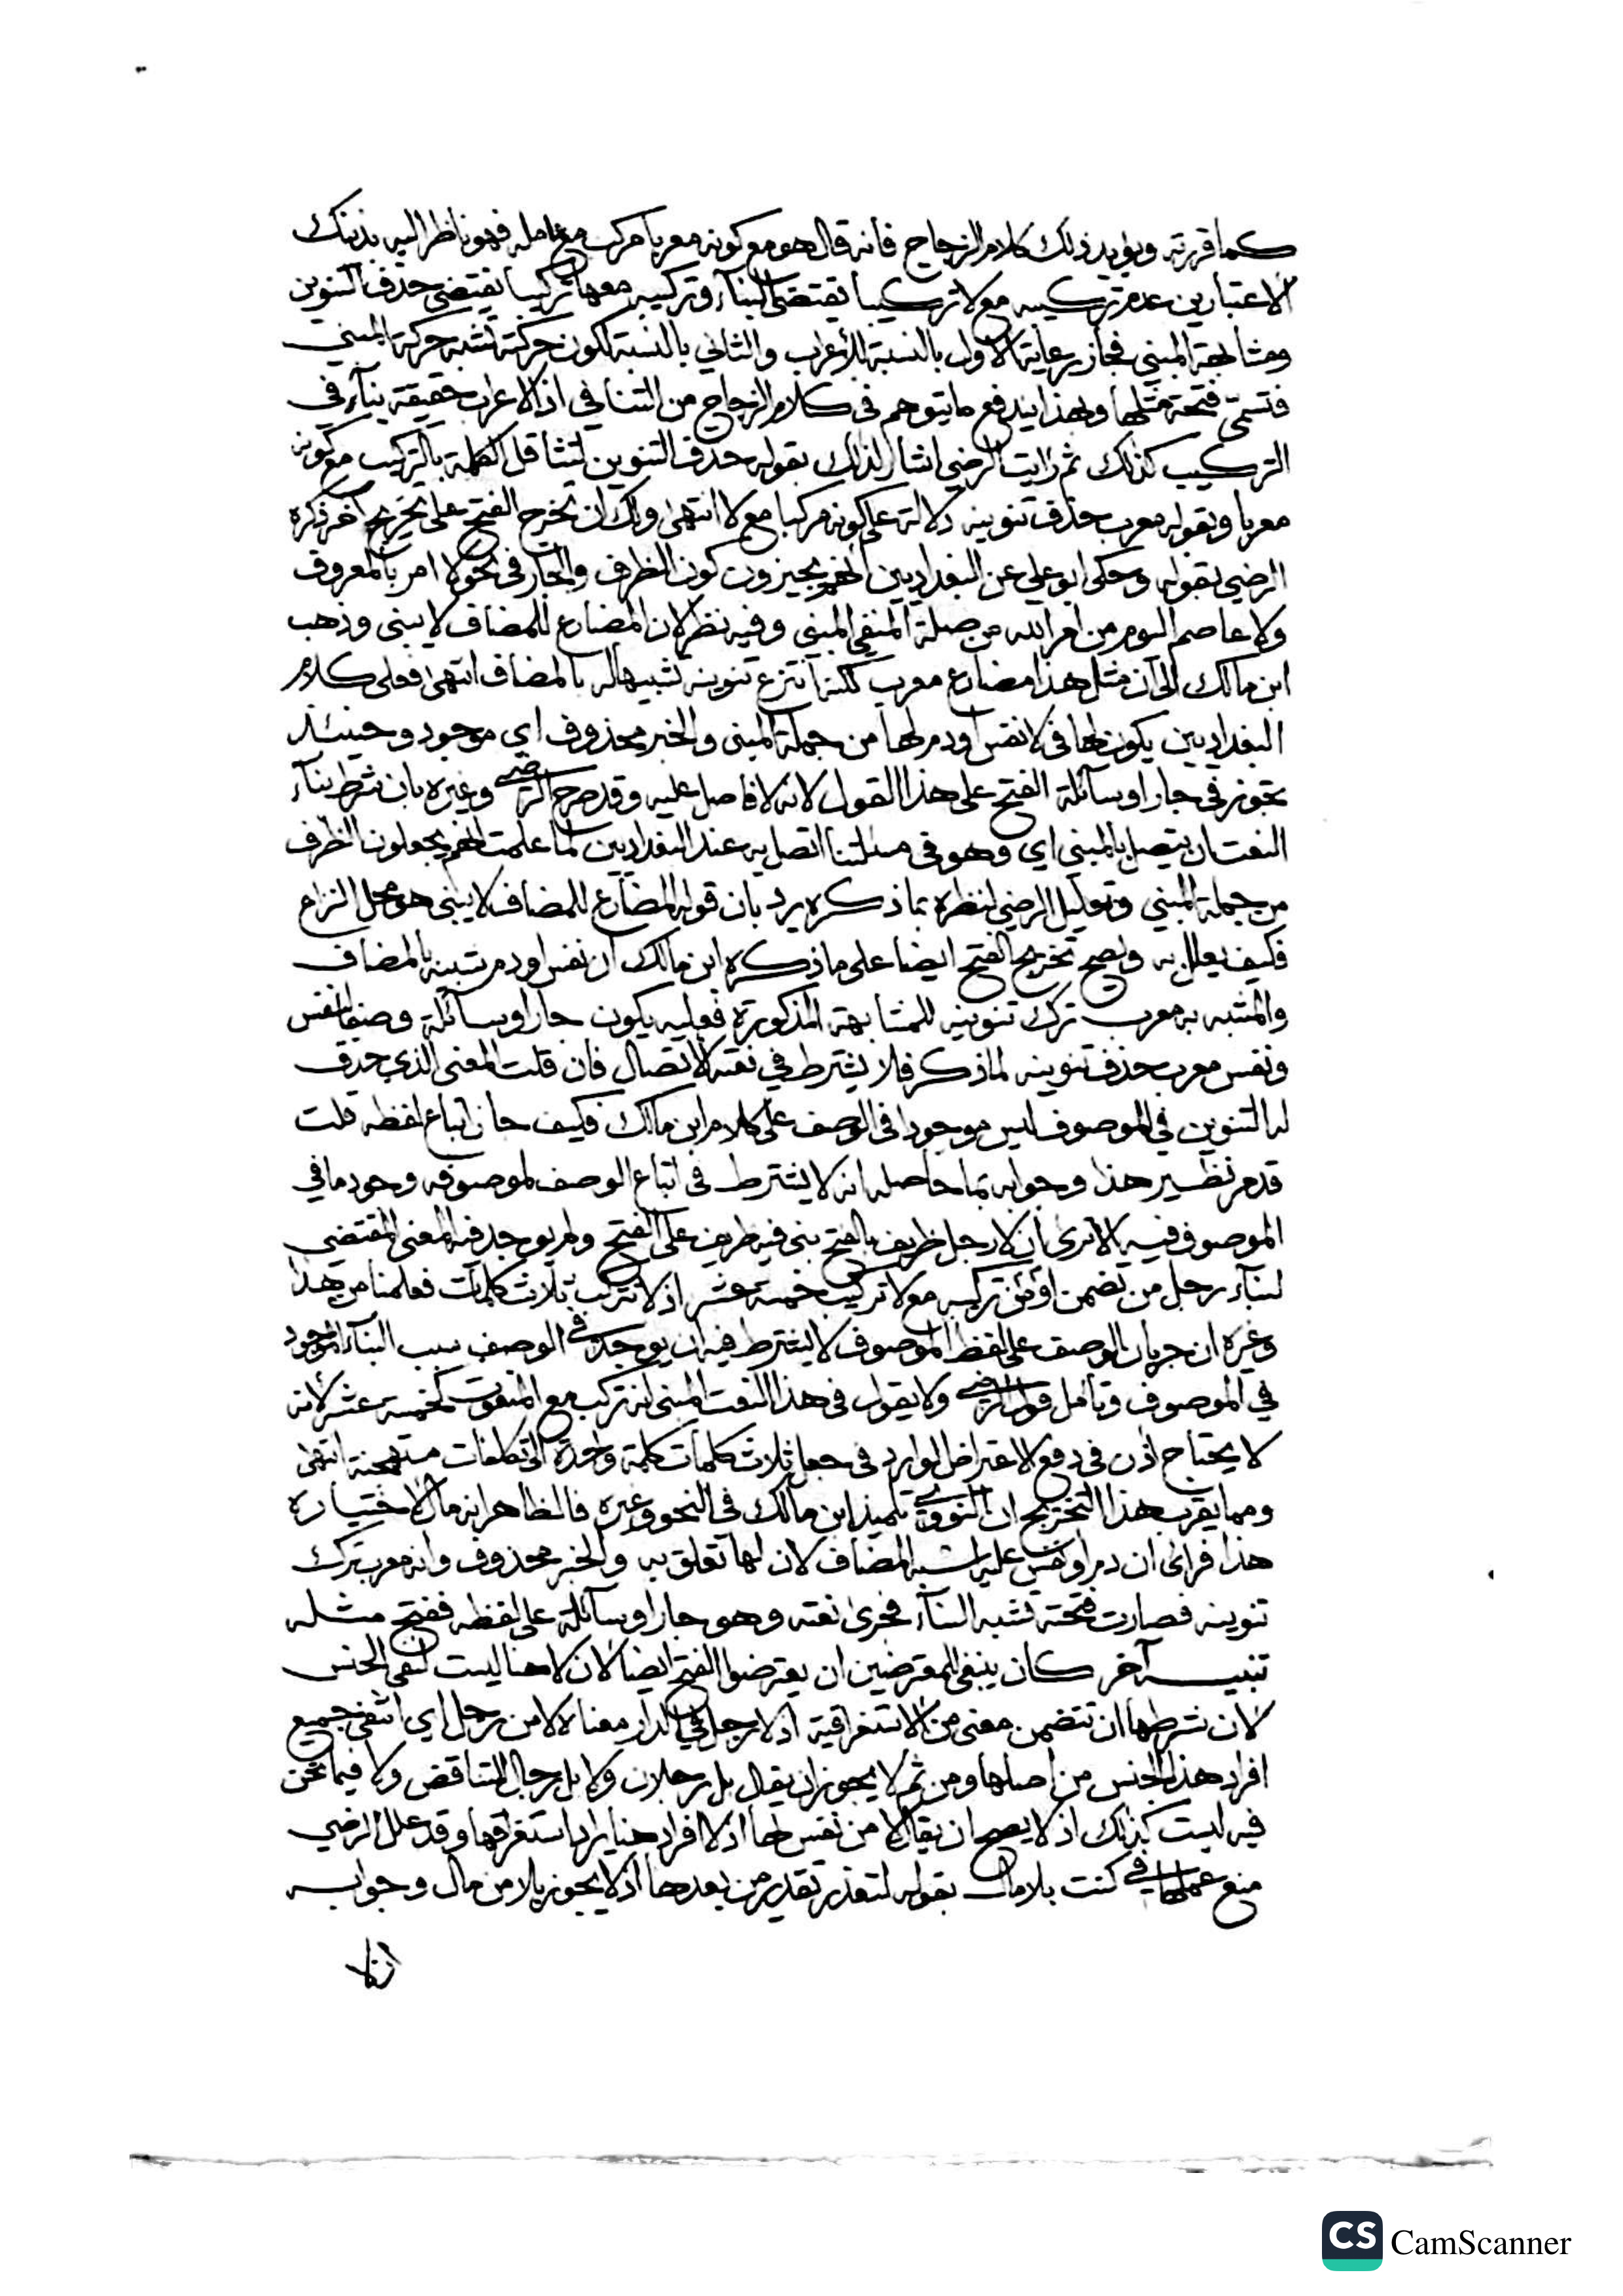 كما قررته ويؤيد ذلك كلام الزجاج فانه قال هو مع كونه معربا مركب مع عامله فهو ناظر اليه بذينك
الاعتبارين عدم تركيبه مع لا تركيبا يقتضي البناء وتركيبه معها تركيبا يقتضي حذف التنوين
ومشابهة المبني فجاز رعاية الاول بالنسبة للاعراب والثاني بالنسبة لكون حركته تشبه حركة المبني
فتسمى فتحة مثلها وبهذا يندفع ما يتوهم في كلام الزجاج من التنافي اذ لا اعراب حقيقة بناء في
التركيب كذلك ثم رايت الرضي اشار لذلك بقوله حذف التنوين لتثاقل الكلمة بالتركيب مع كونه
معربا وبقوله معرب حذف تنوينه دلالة على كونه مركبا مع لا انتهى ولك ان تخرج الفتح على تخريج آخر ذكره
الرضي بقوله وحكى ابو علي عن البغداديين انهم يجيزون كون الظرف والجار في نحو لا امر بالمعروف
ولا عاصم اليوم من امر الله من صلة المنفي المبني وفيه نظر لان المضارع للمضاف لا يبنى وذهب
ابن مالك الى ان مثل هذا مضارع معرب لكنه انتزع تنوينه تشبيها له بالمضاف انتهى فعلى كلام
البغداديين يكون لها في لا نفس او دم لها من جملة المبني والخبر محذوف اي موجود وحينئذ
يجوز في جار او سائلة الفتح على هذا القول لانه لا فاصل عليه وقد صرح الرضي وغيره بان شرط بناء
النعت ان يتصل بالمبني اي وهو في مسئلتنا اتصل به عند البغداديين لما علمت انهم يجعلون الظرف
من جملة المبني وتعليل الرضي لنظره بما ذكره يرد بان قوله المضارع للمضاف لا يبنى هو محل النزاع
فكيف يعلل به ويصح تخريج الفتح ايضا على ما ذكره ابن مالك ان نفس او دم شبيه بالمضاف
والمشبه به معرب ترك تنوينه للمشابهة المذكورة فعليه يكون جار او سائلة وصفا لنفس
ونفس معرب حذف تنوينه لما ذكر فلا يشترط في نعته الاتصال فان قلت المعنى الذي حذف
له التنوين في الموصوف ليس موجودا في الوصف على كلام ابن مالك فكيف جاز اتباع لفظه قلت
قد مر نظير هذا وجوابه بما حاصله انه لا يشترط في اتباع الوصف لموصوفه وجود ما في
الموصوف فيه الا ترى ان لا رجل ظريف بالفتح بني فيه ظريف على الفتح ولم يوجد فيه المعنى المقتضي
لبناء رجل من تضمن او من تركيبه مع لا تركيب خمسة عشر اذ لا تركب ثلاث كلمات فعلمنا من هذا
وغيره ان جريان الوصف على لفظ الموصوف لا يشترط فيه ان يوجد في الوصف سبب البناء الموجود
في الموصوف وتامل قول الرضي ولا يقول في هذا النعت المبني انه تركب مع المنعوت كخمسة عشر لانه
لا يحتاج اذن في دفع الاعتراض الوارد في جعل ثلاث كلمات كلمة واحدة الى تكلفات مستهجنة انتهى
ومما يقرب هذا التخريج ان النووي تلميذ ابن مالك في النحو وغيره فالظاهر انه مال لاختياره
هذا فراى ان دم او نفس عليه شبه المضاف لان لها تعلق به والخبر محذوف وانه معرب ترك
تنوينه فصارت فتحته تشبه البناء فجرى نعته وهو جار او سائلة على لفظه ففتح مثله
تنبيه آخر كان ينبغي للمعترضين ان يعترضوا الفتح ايضا لان لا هنا ليست لنفي الجنس
لان شرطها ان تتضمن معنى من الاستغراقية اذ لا رجل في الدار معناه لا من رجل اي انتفى جميع
افراد هذا الجنس من اصلها ومن ثم لا يجوز ان يقال بل رجلان ولا بل رجال للتناقض ولا فيما نحن
فيه ليست كذلك اذ لا يصح ان يقال لا من نفس لها اذ لا افراد هنا يراد استغراقها وقد علل الرضي
منع عملها في كنت بلا مال بقوله لتعذر تقدير من بعدها اذ لا يجوز بلا من مال وجوابه
انا لا
CS CamScanner